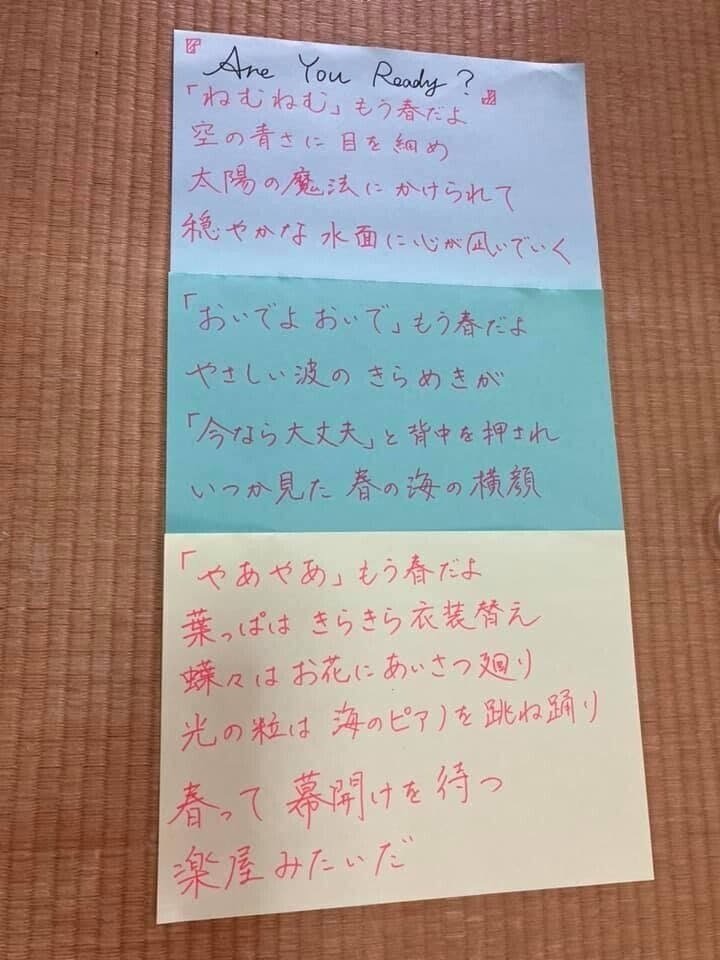 『Are You Ready?』
「ねむねむ」もう春だよ
空の青さに目を細め
太陽の魔法にかけられて
穏やかな水面に心が凪いでいく
「おいでよおいで」もう春だよ
やさしい波のきらめきが
「今なら大丈夫」と背中を押され
いつか見た春の海の横顔
「やあやあ」もう春だよ
葉っぱはきらきら衣装替え
蝶々はお花にあいさつ廻り
光の粒は海のピアノを跳ね踊り
春って幕開けを待つ
楽屋みたいだ